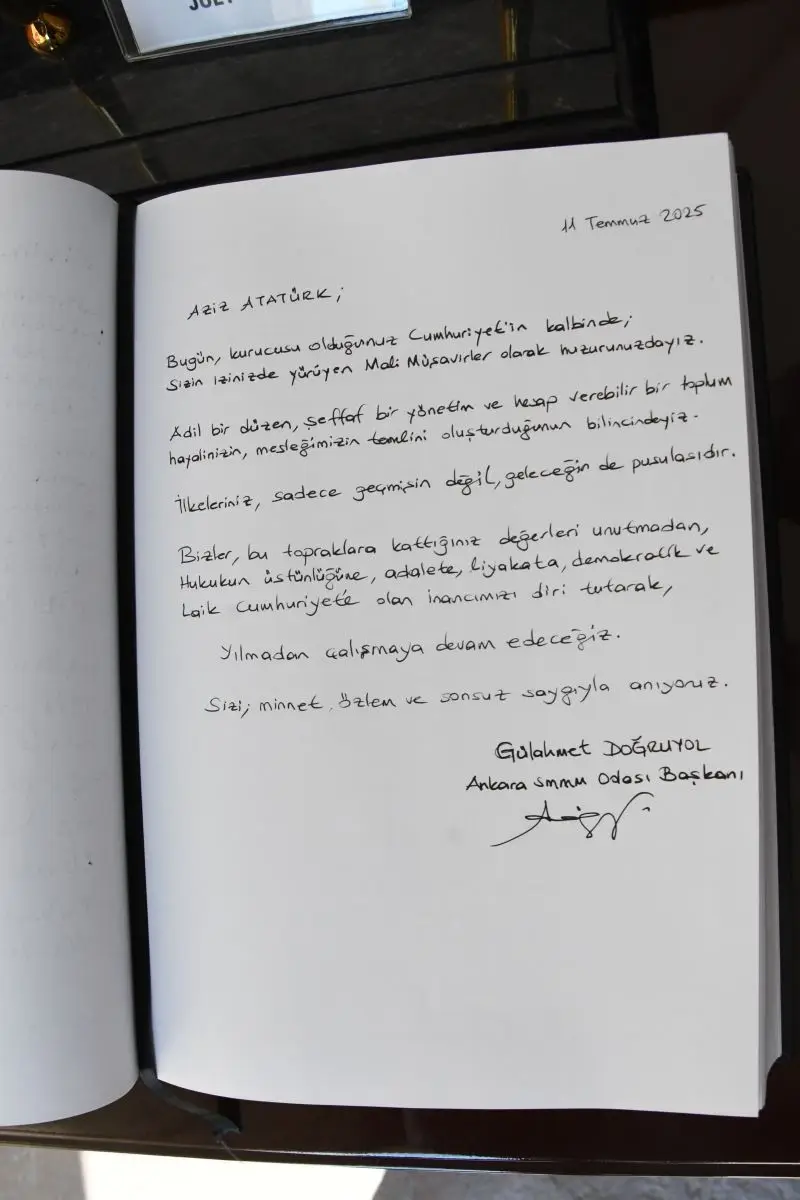 JULY
11 Temmuz 2025
Aziz ATATÜRK;
Bugün, kurucusu olduğunuz Cumhuriyet'in kalbinde;
Sizin izinizde yürüyen Mali Müşavirler olarak huzurunuzdayız.
Adil bir düzen, şeffaf bir yönetim ve hesap verebilir bir toplum
hayalinizin, mesleğimizin temelini oluşturduğunun bilincindeyiz.
İlkeleriniz, sadece geçmişin değil, geleceğin de pusulasıdır.
Bizler, bu topraklara kattığınız değerleri unutmadan,
Hukukun üstünlüğüne, adalete, liyakata, demokratik ve
Laik Cumhuriyet'e olan inancımızı diri tutarak,
Yılmadan çalışmaya devam edeceğiz.
Sizi; minnet, özlem ve sonsuz saygıyla anıyoruz.
Gülahmet DOĞRUYOL
Ankara SMMM Odası Başkanı